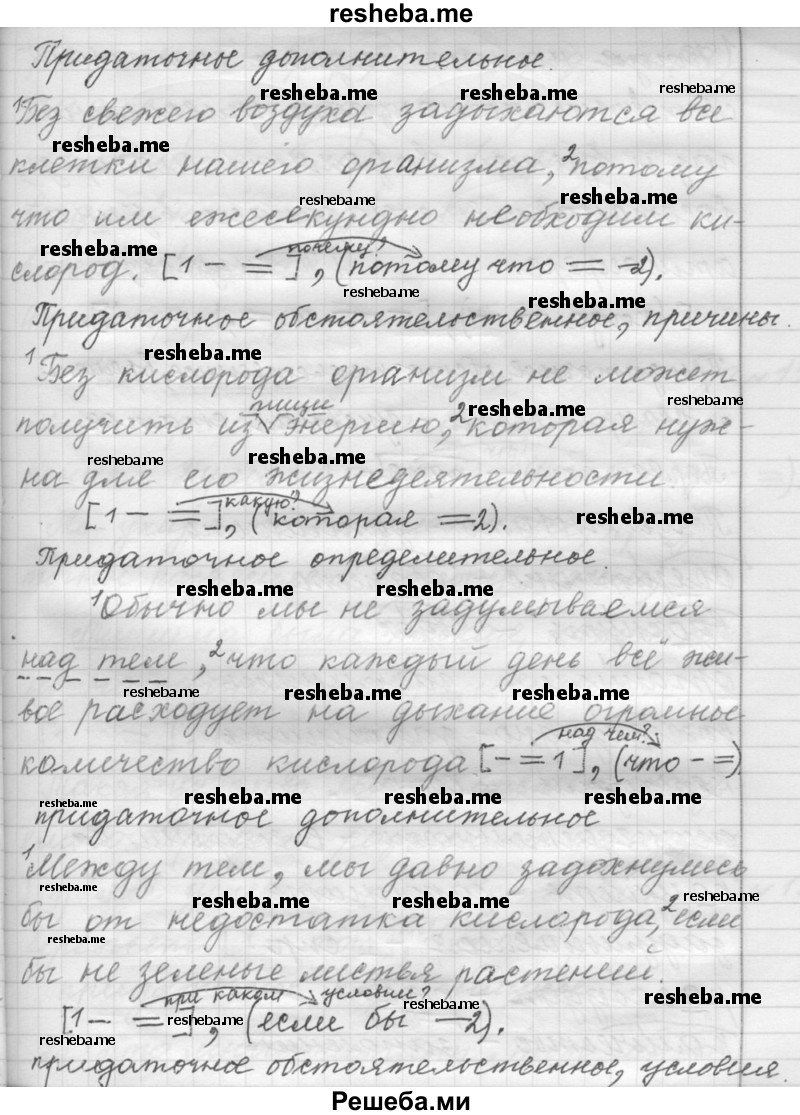 resheba.me
Придаточное дополнительное.
¹Без свежего воздуха задыхаются все
клетки нашего организма, ²потому
что им ежесекундно необходим ки-
слород. [1 – =], (потому что = –2).
почему?
Придаточное обстоятельственное, причины.
¹Без кислорода организм не может
получить из√энергию, ²которая нуж-
пищи
на для его жизнедеятельности.
[1 – =], (которая =2).
какую?
Придаточное определительное
¹Обычно мы не задумываемся
над тем, ²что каждый день всё жи-
вое расходует на дыхание огромные
количество кислорода [– = 1], (что – =)
над чем?
придаточное дополнительное
¹Между тем, мы давно задохнулись
бы от недостатка кислорода, ²если
бы не зеленые листья растении.
[1 – =], (если бы –2).
при каком условии?
придаточное обстоятельственное, условия.
Решеба.ми